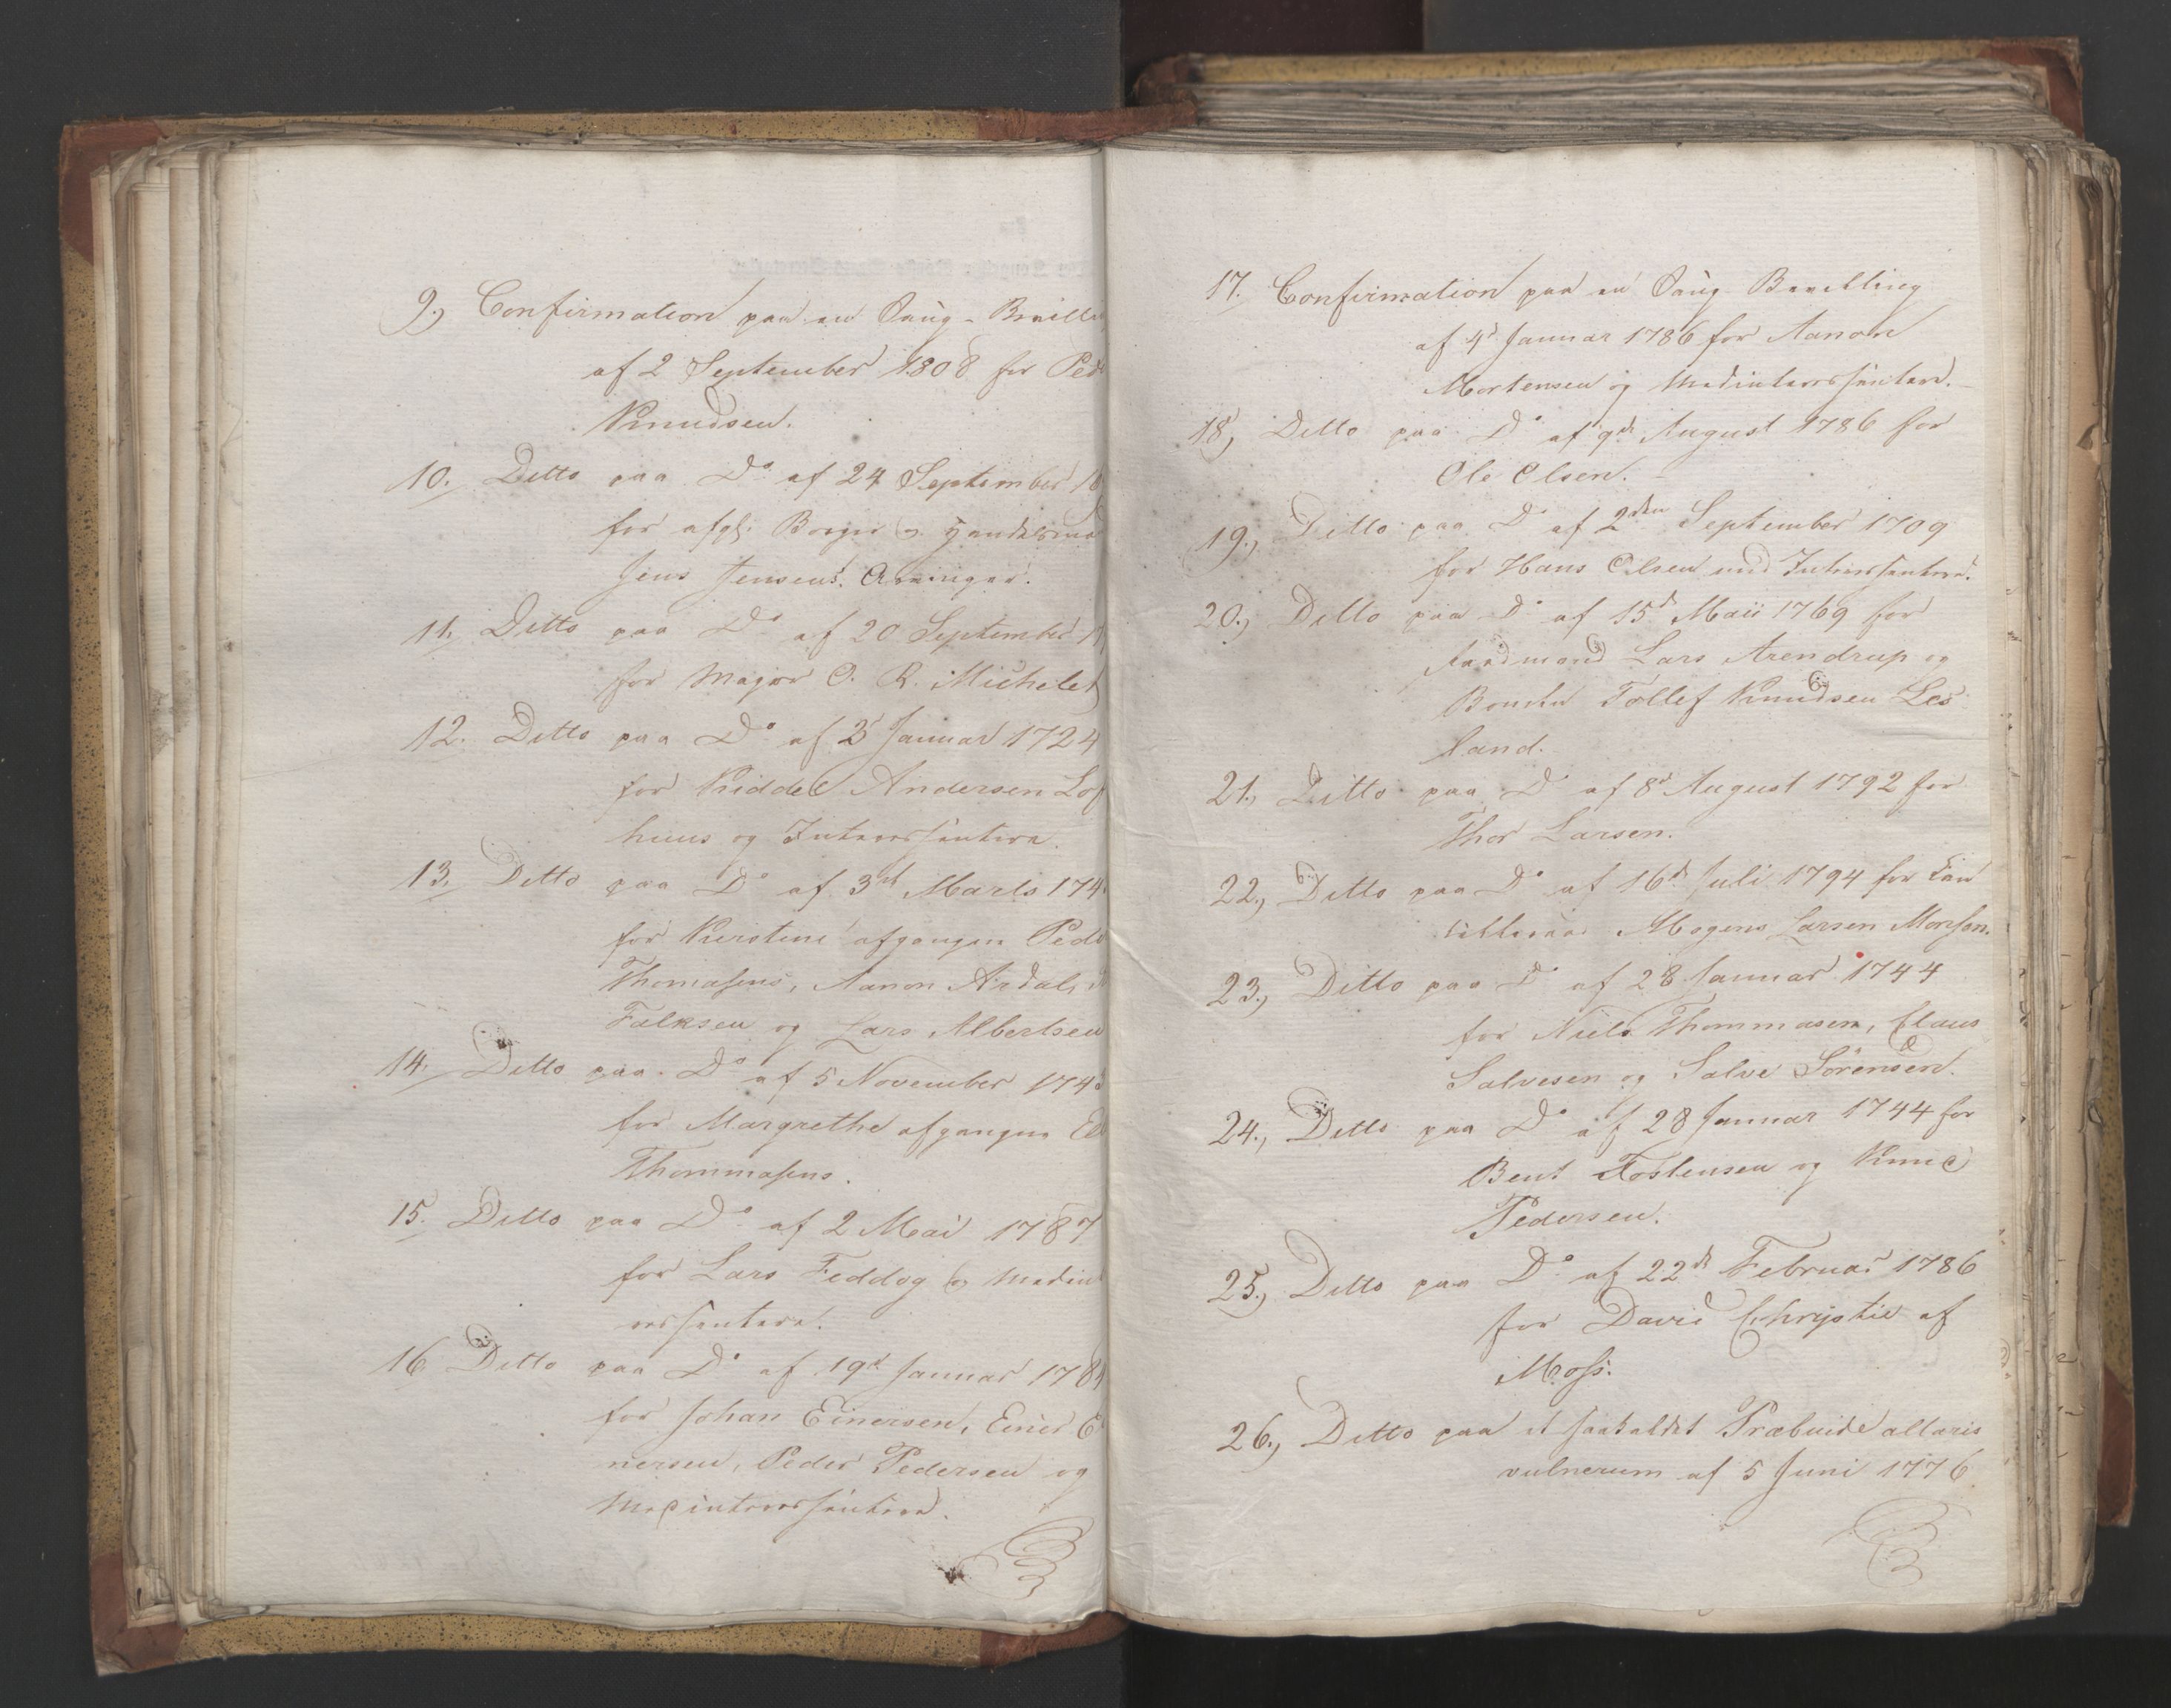 9.) Confirmation paa en Saug-Bevilli
af 2 September 1808 for Ped
Knudsen.
10. Ditto paa Do af 24 September
for afgl. Borger og Handelsma
Jens Jensens Arvinger.
11. Ditto paa Do af 20 September
for Major O. R. Michelet
12. Ditto paa Do af 2d Januar 1724
for Kiddel Andersen Lof
huus og Interessentere.
13. Ditto paa Do af 3de Marts 174
for Kierstine afgangne Pede
Thomasens, Aanon Ardal,
Falksen og Lars Albertsen
14. Ditto paa Do af 5 November 174
for Margrethe afgangne El
Thommasens.
15. Ditto paa Do af 2 Mai 1787
for Lars Feddog og Medint
eressentere.
16. Ditto paa Do af 19d Januar 178
for Johan Einersen, Einer E
nersen, Peder Pedersen og
Medinteressentere.
17. Confirmation paa en Saug Bevilling
af 4d Januar 1786 for Aanon
Mortensen og Medinteressentere.
18.) Ditto paa Do af 9de August 1786 for
Ole Olsen.
19.) Ditto paa Do af 2den September 1709
for Hans Olsen med Interessentere.
20.) Ditto paa Do af 15d Maii 1769 for
Raadmand Lars Arendrup og
Bonden Tollef Knudsen Les
land.
21.) Ditto paa Do af 8d August 1792 for
Thor Larsen.
22.) Ditto paa Do af 16d Juli 1794 for
Mogens Larsen Monsen.
23.) Ditto paa Do af 28 Januar 1744
for Niels Thommasen, Claus
Salvesen og Salve Sörensen.
24.) Ditto paa Do af 28 Januar 1744 for
Bent Tostensen og Knud
Pedersen.
25.) Ditto paa Do af 22d Februar 1786
for David Chrystie af
Moss.
26.) Ditto paa et saakaldet Præbende altaris
vulnerum af 5 Juni 1776